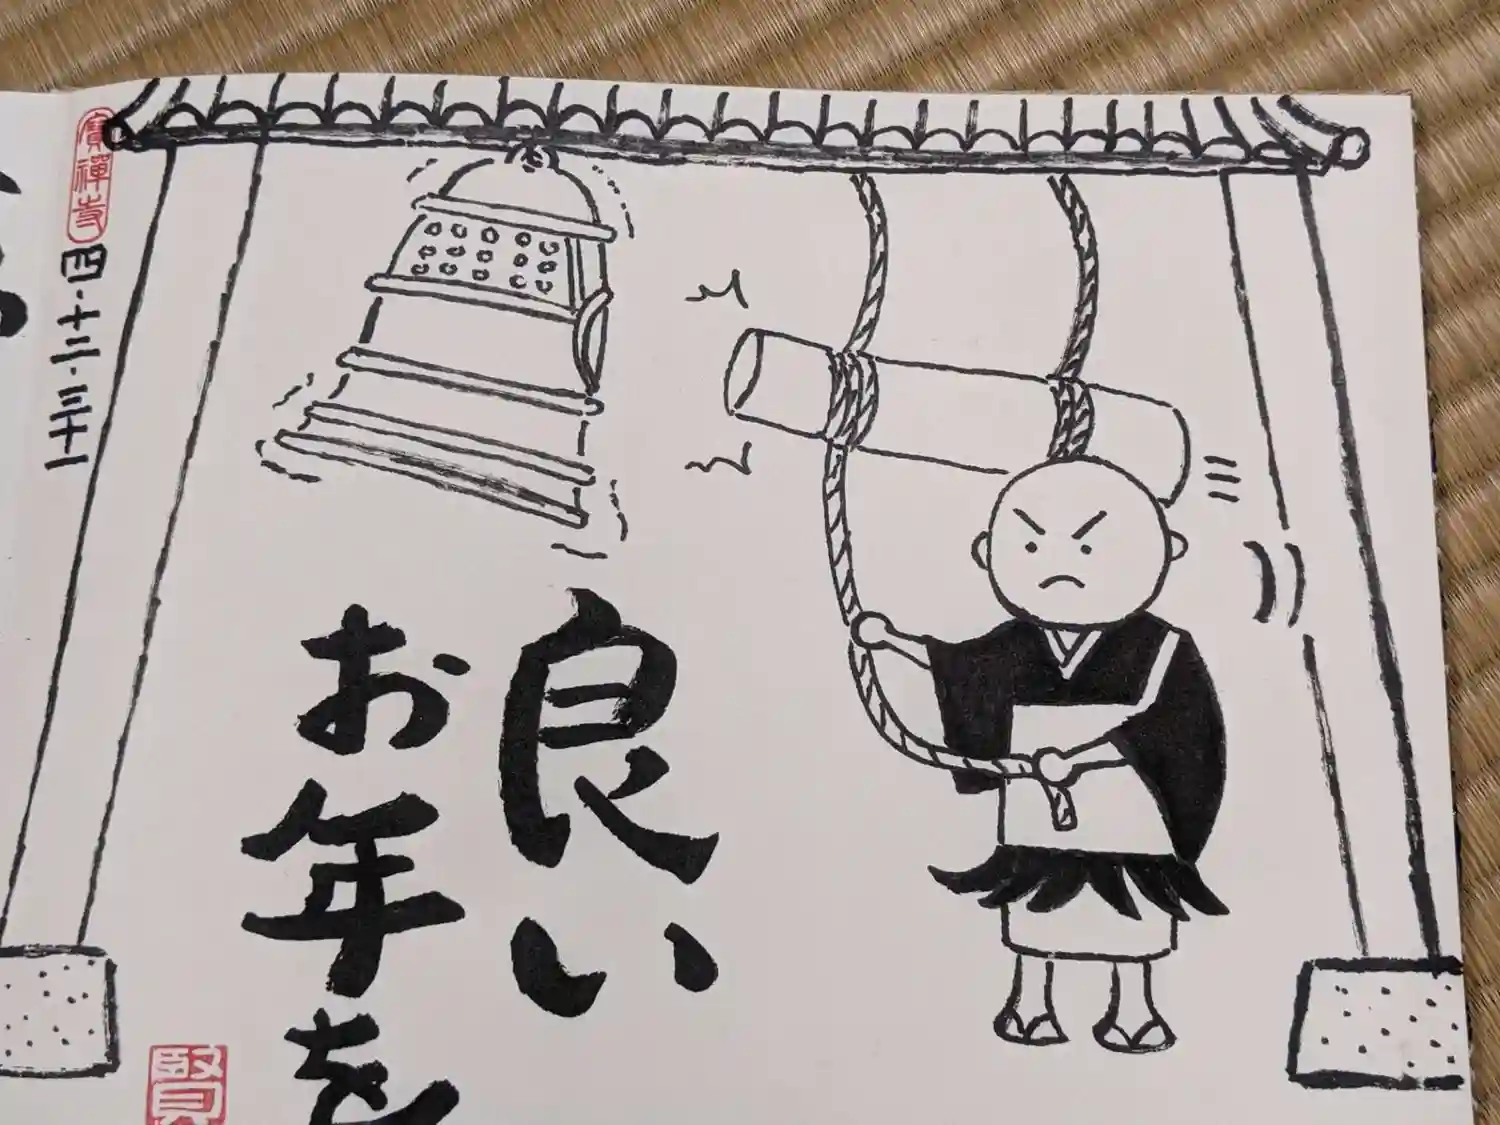 良い
お年を
寳禅寺
四・十二・三十一
賢